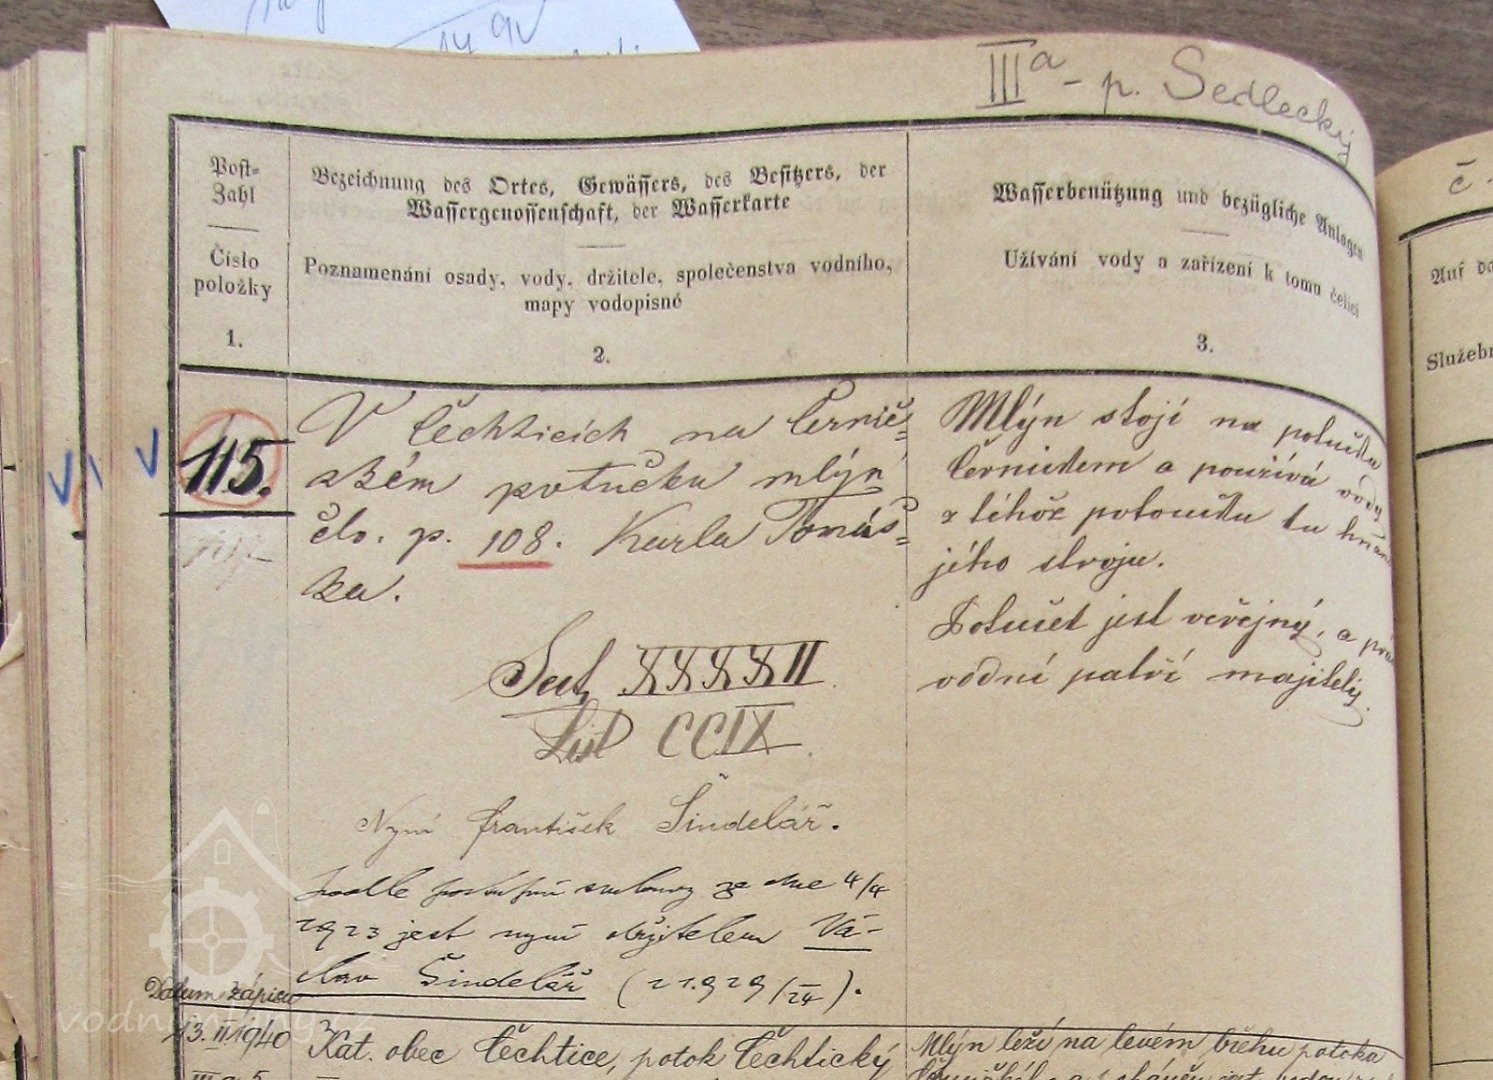 IIIa - p. Sedlecký
Post-
Zahl
Číslo
položky
1.
Bezeichnung des Ortes, Gewässers, des Besitzers, der
Wassergenossenschaft, der Wasserkarte
Poznamenání osady, vody, držitele, společenstva vodního,
mapy vodopisné
2.
Wasserbenützung und bezügliche Anlagen
Užívání vody a zařízení k tomu čelící
3.
Auf
Služebn
115.
V Čechticích na Černič-
ském potůčku mlýn
čís. p. 108. Karla Tomáš-
ka.
Sect XXXXII
List CCIX
Nyní František Šindelář.
podle postupní smlouvy ze dne 4/4
1923 jest nyní držitelem Vá-
clav Šindelář (21.929/24).
Mlýn stojí na potůčku
Černickém a používá vody
z téhož potoučku ku hnaní
jeho stroju.
Potůček jest veřejný, a prá
vodní patří majiteli.
Datum zápisu
13.II.1940
Kat. obec Čechtice, potok Čechtický
Mlýn leží na levém břehu potoka
vodnimlyny.cz